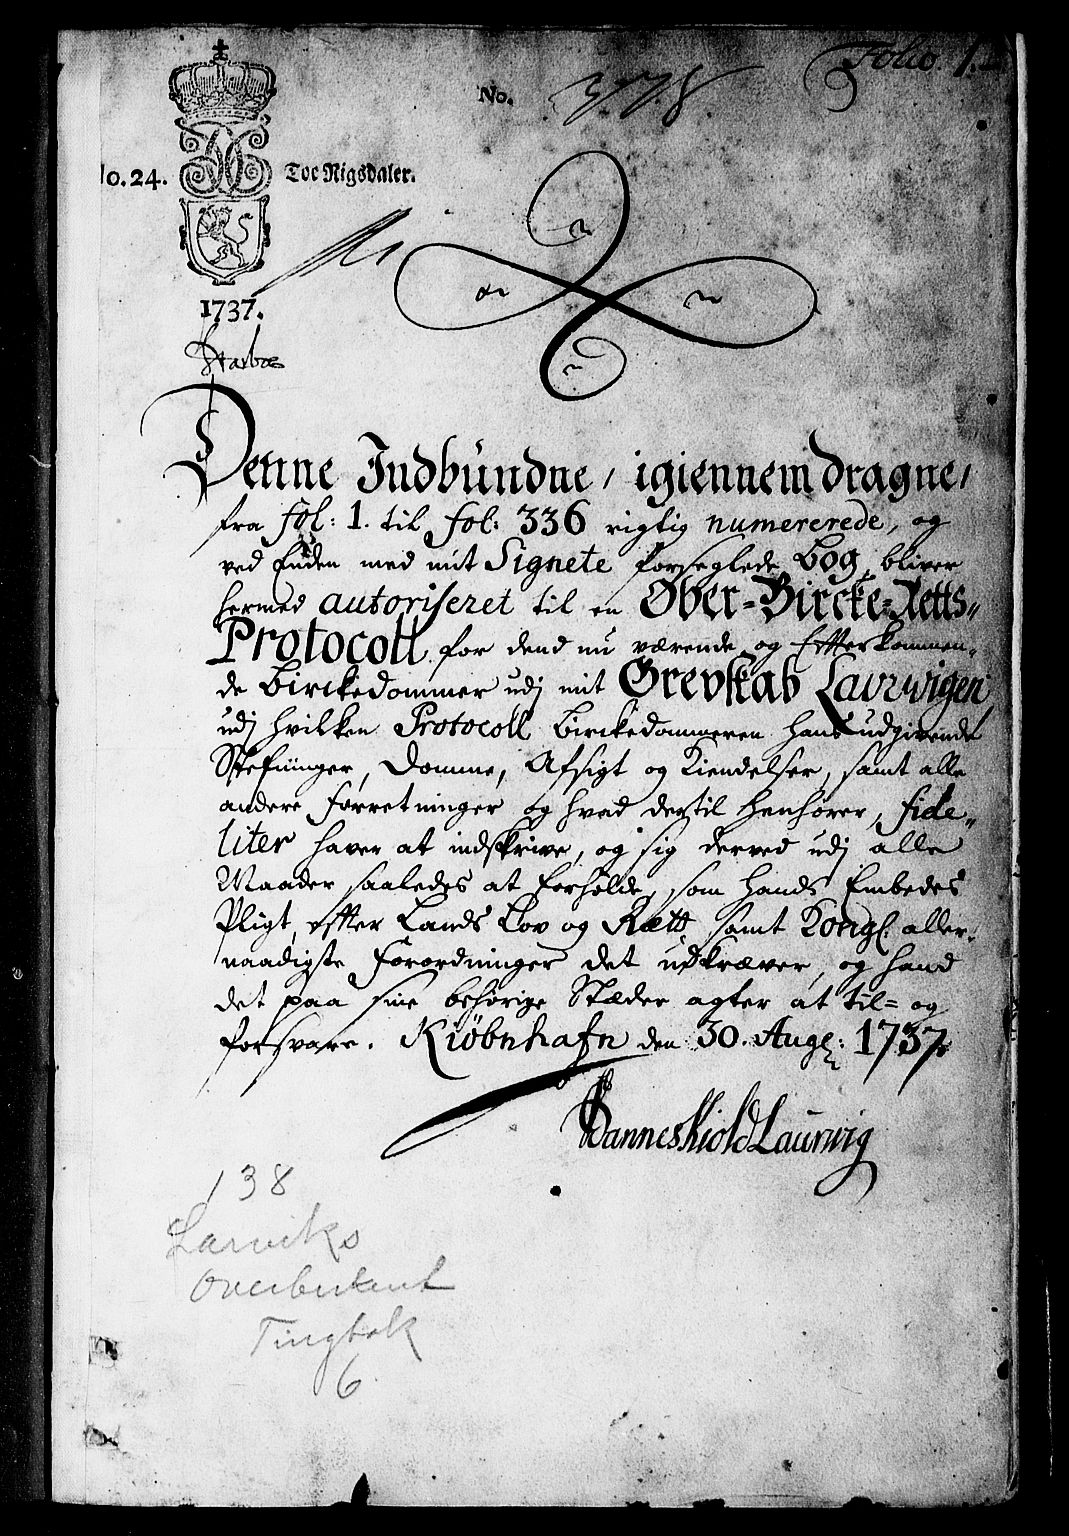 Folio. 1.
No. 3778
No. 24. Toe Rigsdaler.
1737.
Denne Indbundne, igiennemdragne,
fra fol: 1. til fol: 336 rigtig numererede, og
ved Enden med mit Signete forseglede Bog, bliver
hermed autoriseret til en Ober-Bircke-Retts-
Protocoll for dend nu værende og Efterkommen-
de Birckedommer udj mit Grevskab Laurwigen
udj hvilken Protocoll Birckedommeren hans udgivende
Stefninger, Domme, Afsigt og Kiendelser, samt alle
andre Forretninger og hvad dertil henhører, fide-
liter haver at indskrive, og sig derved udj alle
Maader saaledes at forholde, som hands Embedes
Pligt, efter Lands Lov og Rætt, samt Kongl. aller-
naadigste Forordninger det udkræver, og hand
det paa sine behørige Stæder agter at til- og
forsvare. Kiøbnhafn den 30. Aug: 1737.
Danneskiold Laurwig
138
Larviks
Overbirkent
Tingbok
6